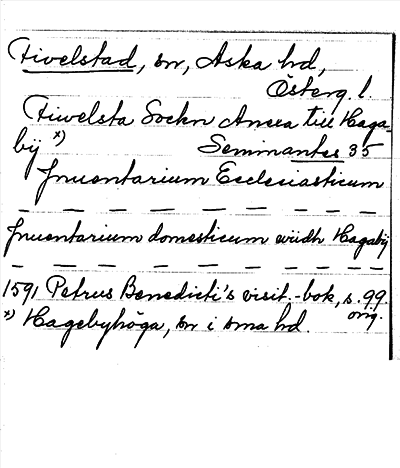 Fivelstad, sn, Aska hd,
Österg. l.
Fiwelsta Sockn Anexa till Haga-
bÿ x) Seminantes 35
Inuentarium Ecclesiasticum
— — — — — — — — —
Inuentarium domesticum widh Hagabÿ
— — — — — — — — —
1591 Petrus Benedicti's visit.-bok, s. 99.
orig.
x) Hagebyhöga, sn i sma hd.